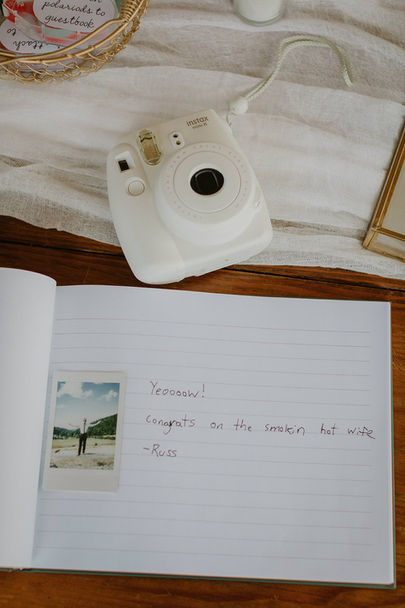 polariods to
guestbook
instax
Yeoooow!
Congrats on the smokin hot wife
-Russ